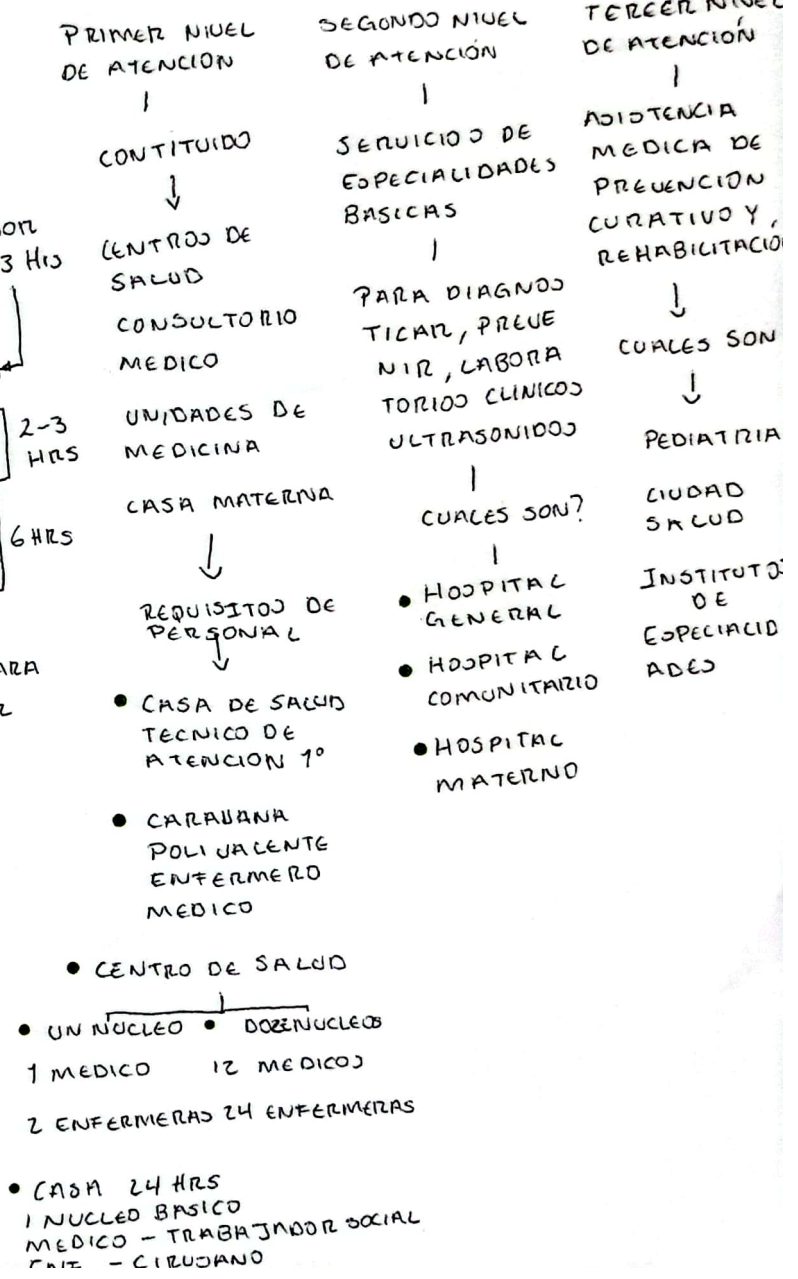 PRIMER NIVEL
DE ATENCION
CONTITUIDO
CENTROS DE
SALUD
CONSULTORIO
MEDICO
UNIDADES DE
MEDICINA
CASA MATERNA
REQUISITOS DE
PERSONAL
• CASA DE SALUD
TECNICO DE
ATENCION 1°
• CARAVANA
POLIVALENTE
ENFERMERO
MEDICO
• CENTRO DE SALUD
• UN NUCLEO • DOZENUCLEOS
1 MEDICO 12 MEDICOS
2 ENFERMERAS 24 ENFERMERAS
• CASA 24 HRS
1 NUCLEO BASICO
MEDICO - TRABAJADOR SOCIAL
- CIRUJANO
3 HRS
2-3
HRS
6 HRS
SEGONDO NIVEL
DE ATENCIÓN
SERVICIOS DE
ESPECIALIDADES
BASICAS
PARA DIAGNOS
TICAR, PREVE
NIR, LABORA
TORIOS CLINICOS
ULTRASONIDOS
CUALES SON?
• HOSPITAL
GENERAL
• HOSPITAL
COMUNITARIO
• HOSPITAL
MATERNO
TERCER NIVEL
DE ATENCIÓN
ASISTENCIA
MEDICA DE
PREVENCION
CURATIVO Y,
REHABILITACIO
CUALES SON
PEDIATRIA
CIUDAD
SALUD
INSTITUTOS
DE
ESPECIALID
ADES